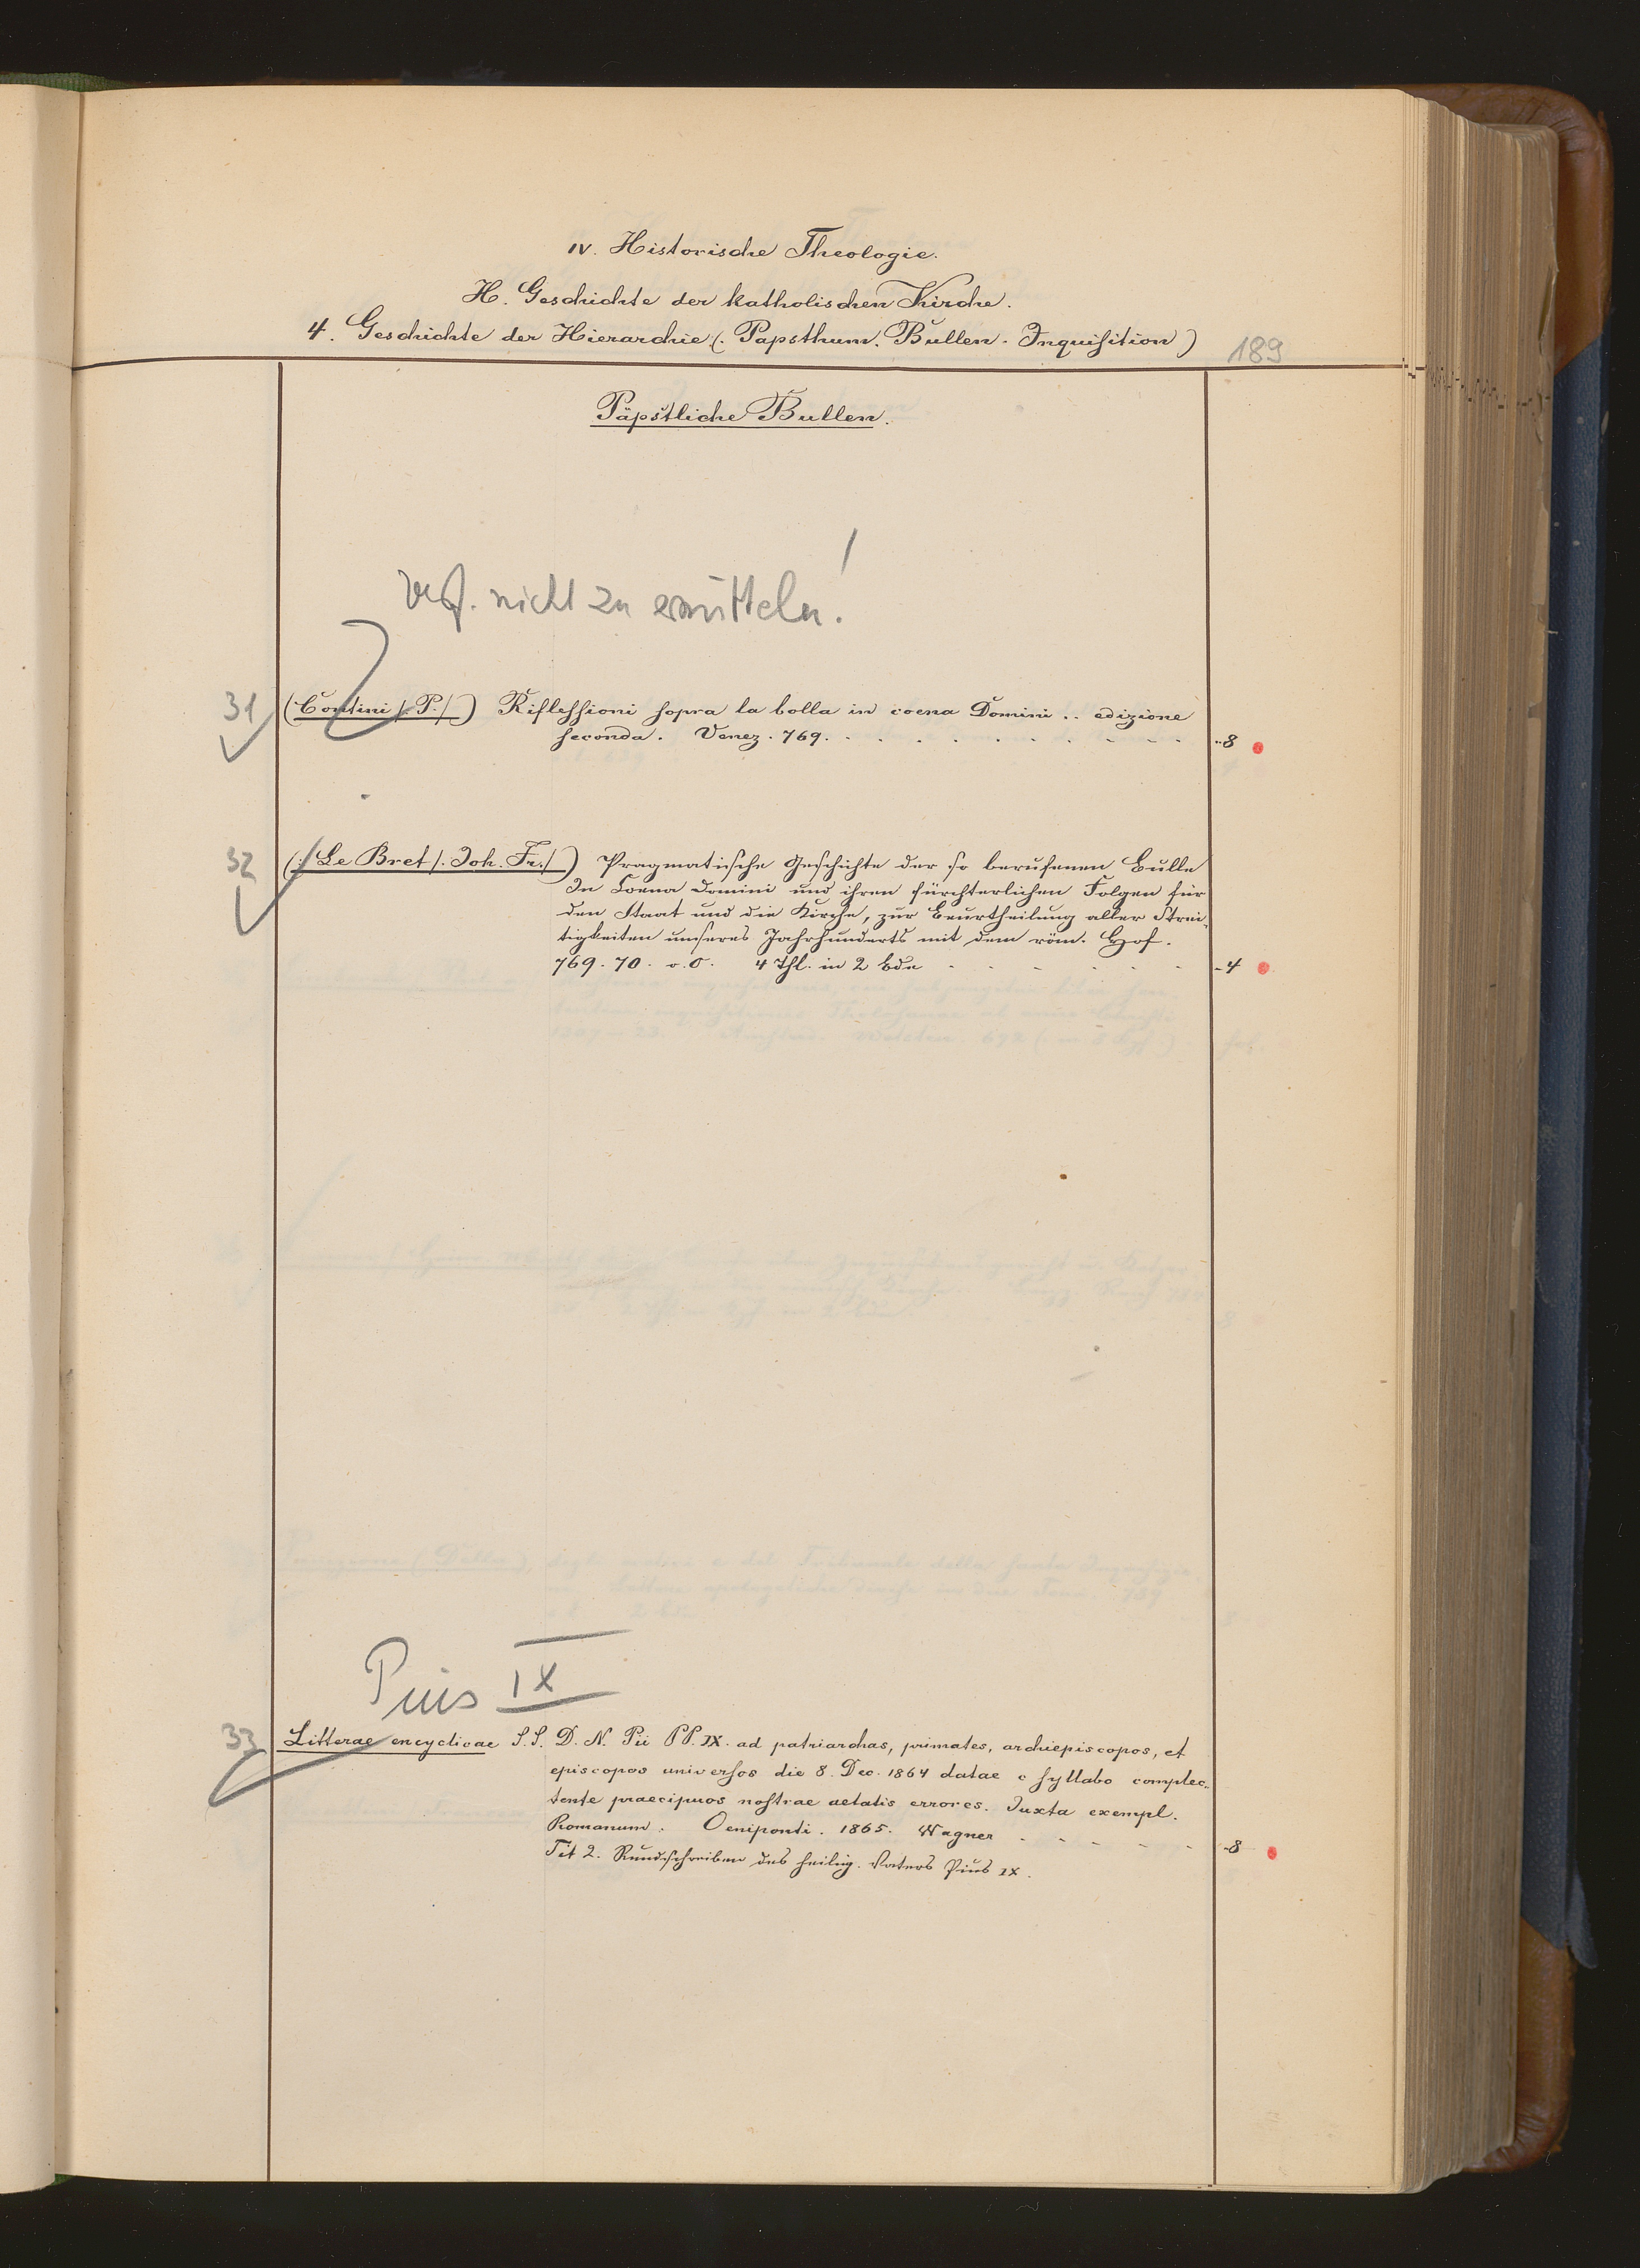 IV. Historische Theologie.
H. Geschichte der katholischen Kirche.
4. Geschichte der Hierarchie (. Papsthum. Bullen. Inquisition)
189
Päpstliche Bullen.
Verf. nicht zu ermitteln!
31 (Contini /. P./) Riflessioni sopra la bolla in coena Domini .. edizione
seconda. Venez. 769. - 8
32 (: Le Bret /. Joh. Fr. /) Pragmatische Geschichte der so berufenen Bulle
In Coena Domini und ihren fürchterlichen Folgen für
den Staat und die Kirche, zur Beurtheilung aller Strei-
tigkeiten unseres Jahrhunderts mit dem röm. Hof.
769. 70. o. O. 4 Thl. in 2 Bdn - 4
Pius IX
33 Litterae encyclicae S. S. D. N. Pii PP. IX. ad patriarchas, primates, archiepiscopos, et
episcopos universos die 8. Dec. 1864 datae c syllabo complec-
tente praecipuos nostrae aetatis errores. Juxta exempl.
Romanum. Oeniponti. 1865. Wagner - 8
Tit 2. Rundschreiben des heilig. Vaters Pius IX.